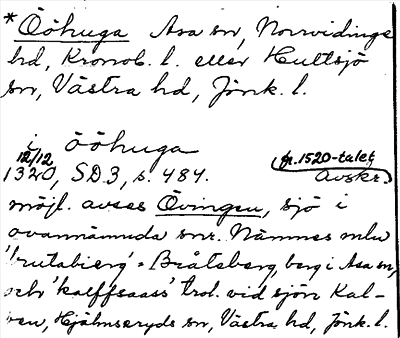 *Ööhuga Asa sn, Norrvidinge
hd, Kronob. l. eller Hultsjö
sn, Västra hd, Jönk. l.
i ööhuga
12/12 fr. 1520-talet
1320, SD3, s. 484. Avskr.
möjl. avses Övingen, sjö i
ovannämnda snr. Nämnes mlu
'brutabierg' = Bråtaberg, berg i Asa sn,
och 'kalffsaass' trol. vid sjön Kal-
ven, Hjälmseryds sn, Västra hd, Jönk. l.